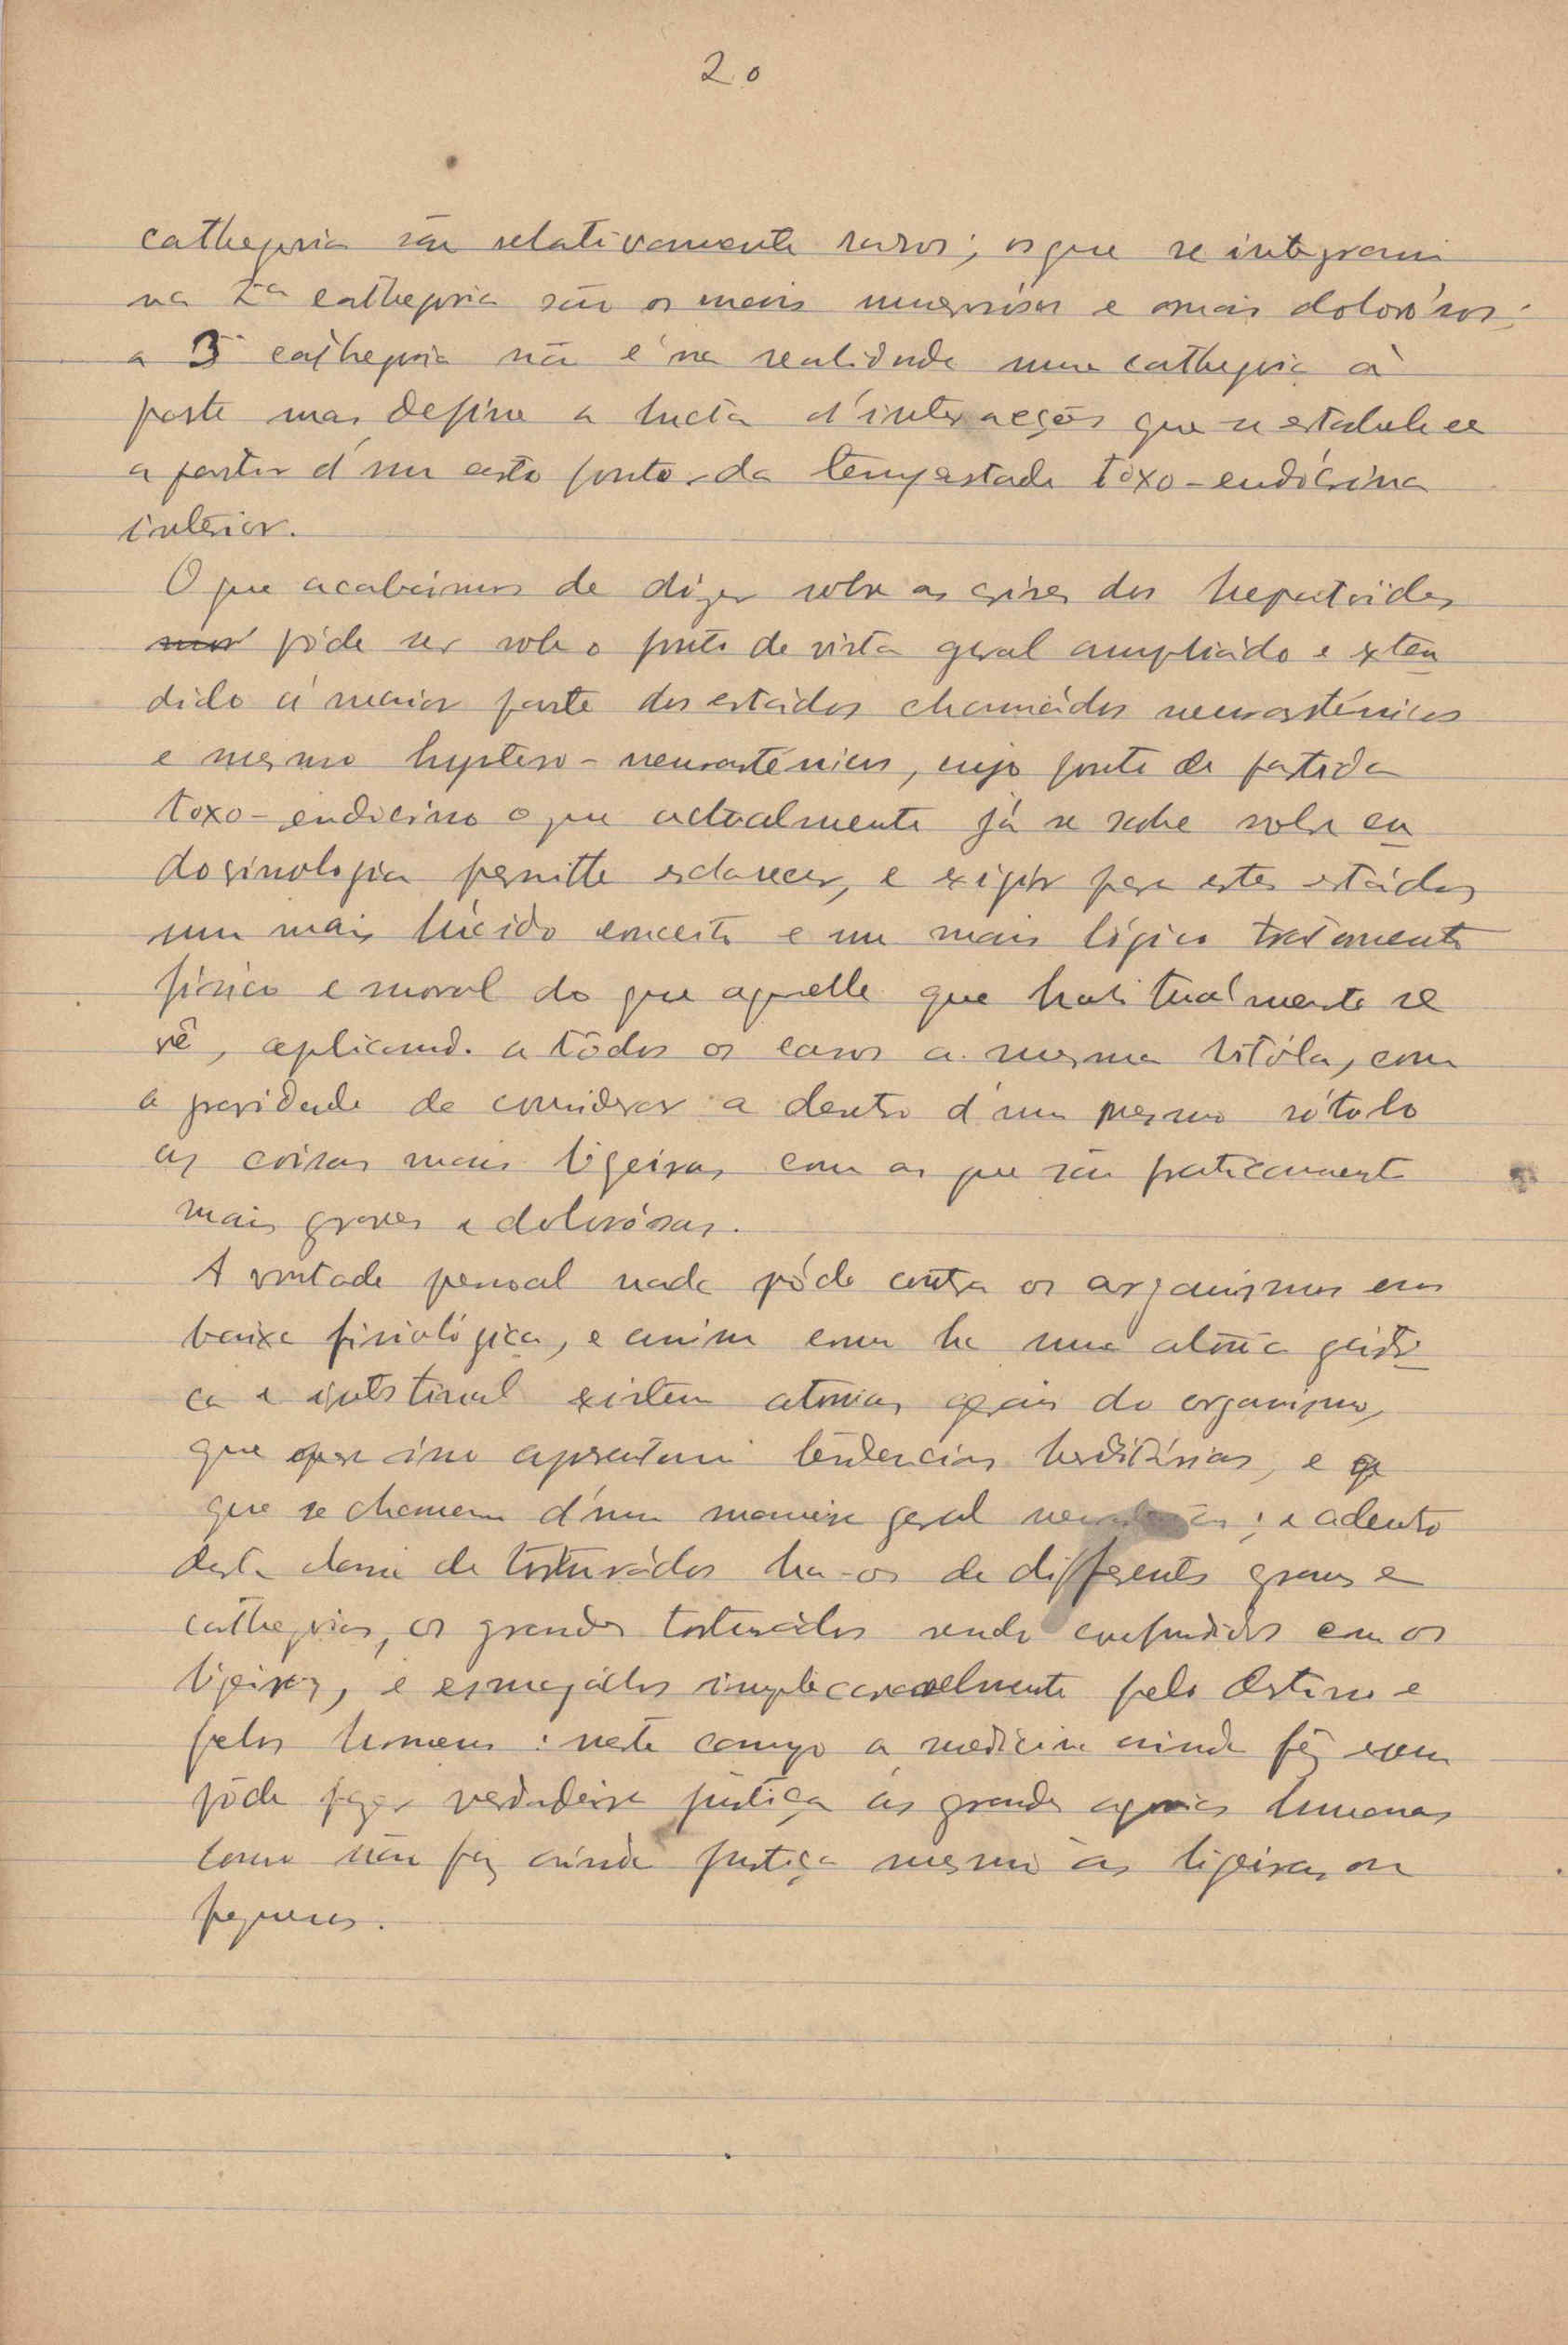 20
cathegoria são relativamente raros; os que se integram
na 2ª cathegoria são os mais numerósos e os mais dolorósos;
a 3ª cathegoria não é na realidade uma cathegoria á
parte mas define a lucta d'interacções que se estabelece
a partir d'um certo ponto da tempestade toxo-endócrina
interior.
O que acabámos de dizer sobre as crises dos hepatoides
póde ser sob o ponto de vista geral ampliádo e exten
dido á maior parte dos estádos chamádos neurasténicos
e mesmo hystero-neurasténicos, cujo ponto de partida
toxo-endocrino o que actualmente já se sabe sobre en
docrinologia permitte esclarecer, e exigir para estes estádos
um mais lúcido conceito e um mais lógico tratamento
fisico e moral do que aquelle que habitualmente se
vê, aplicando a tôdos os casos a mesma bitóla, com
a gravidade de considerar a dentro d'um mesmo rótulo
as coisas mais ligeiras com as que são praticamente
mais graves e dolorósas.
A vontade pessoal nada póde contra os organismos em
baixa fisiológica, e assim como ha uma atonia gástri
ca e intestinal existem atonias gerais do organismo,
que por isso apresentam tendencias herditárias, e
que se chamam d'uma maneira geral ; e adentro
desta classe de torturádos ha-os de differentes graus e
cathegorias, os grandes torturádos sendo confundidos com os
ligeiros, e esmagádos implacavelmente pelo Destino e
pelos homens: neste campo a medicina ainda fez nem
póde fazer verdadeira justiça ás grandes agonias humanas
como não faz ainda justiça mesmo ás ligeiras ou
pequenas.